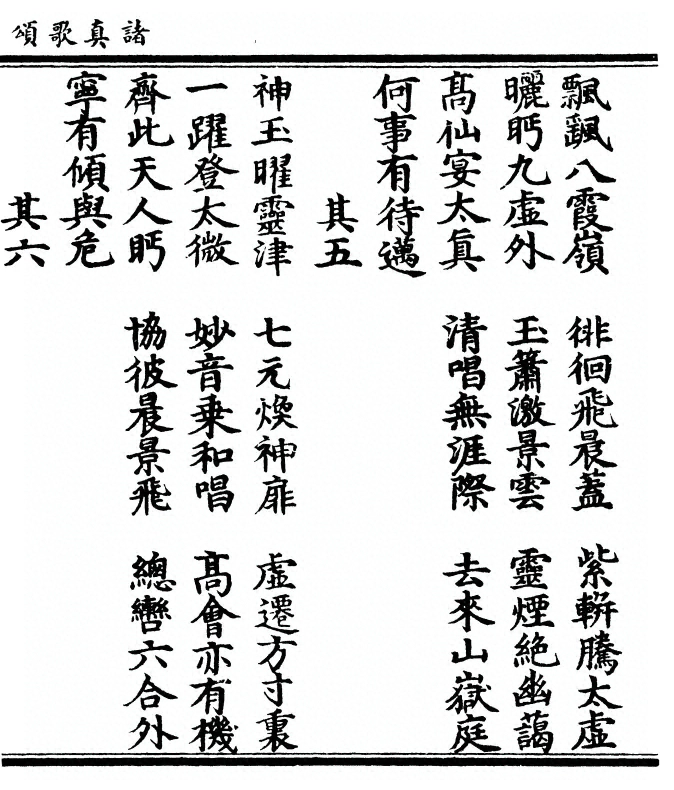 諸真歌頌
飄颻八霞嶺 徘徊飛晨蓋 紫軿騰太虛
矖眄九虛外 玉簫激景雲 靈煙絕幽藹
髙仙宴太真 清唱無涯際 去來山嶽庭
何事有待邁
其五
神玉曜靈津 七元煥神扉 虛遷方寸裏
一躍登太微 妙音乗和唱 髙會亦有機
齊此天人眄 協彼晨景飛 總轡六合外
寧有傾與危
其六